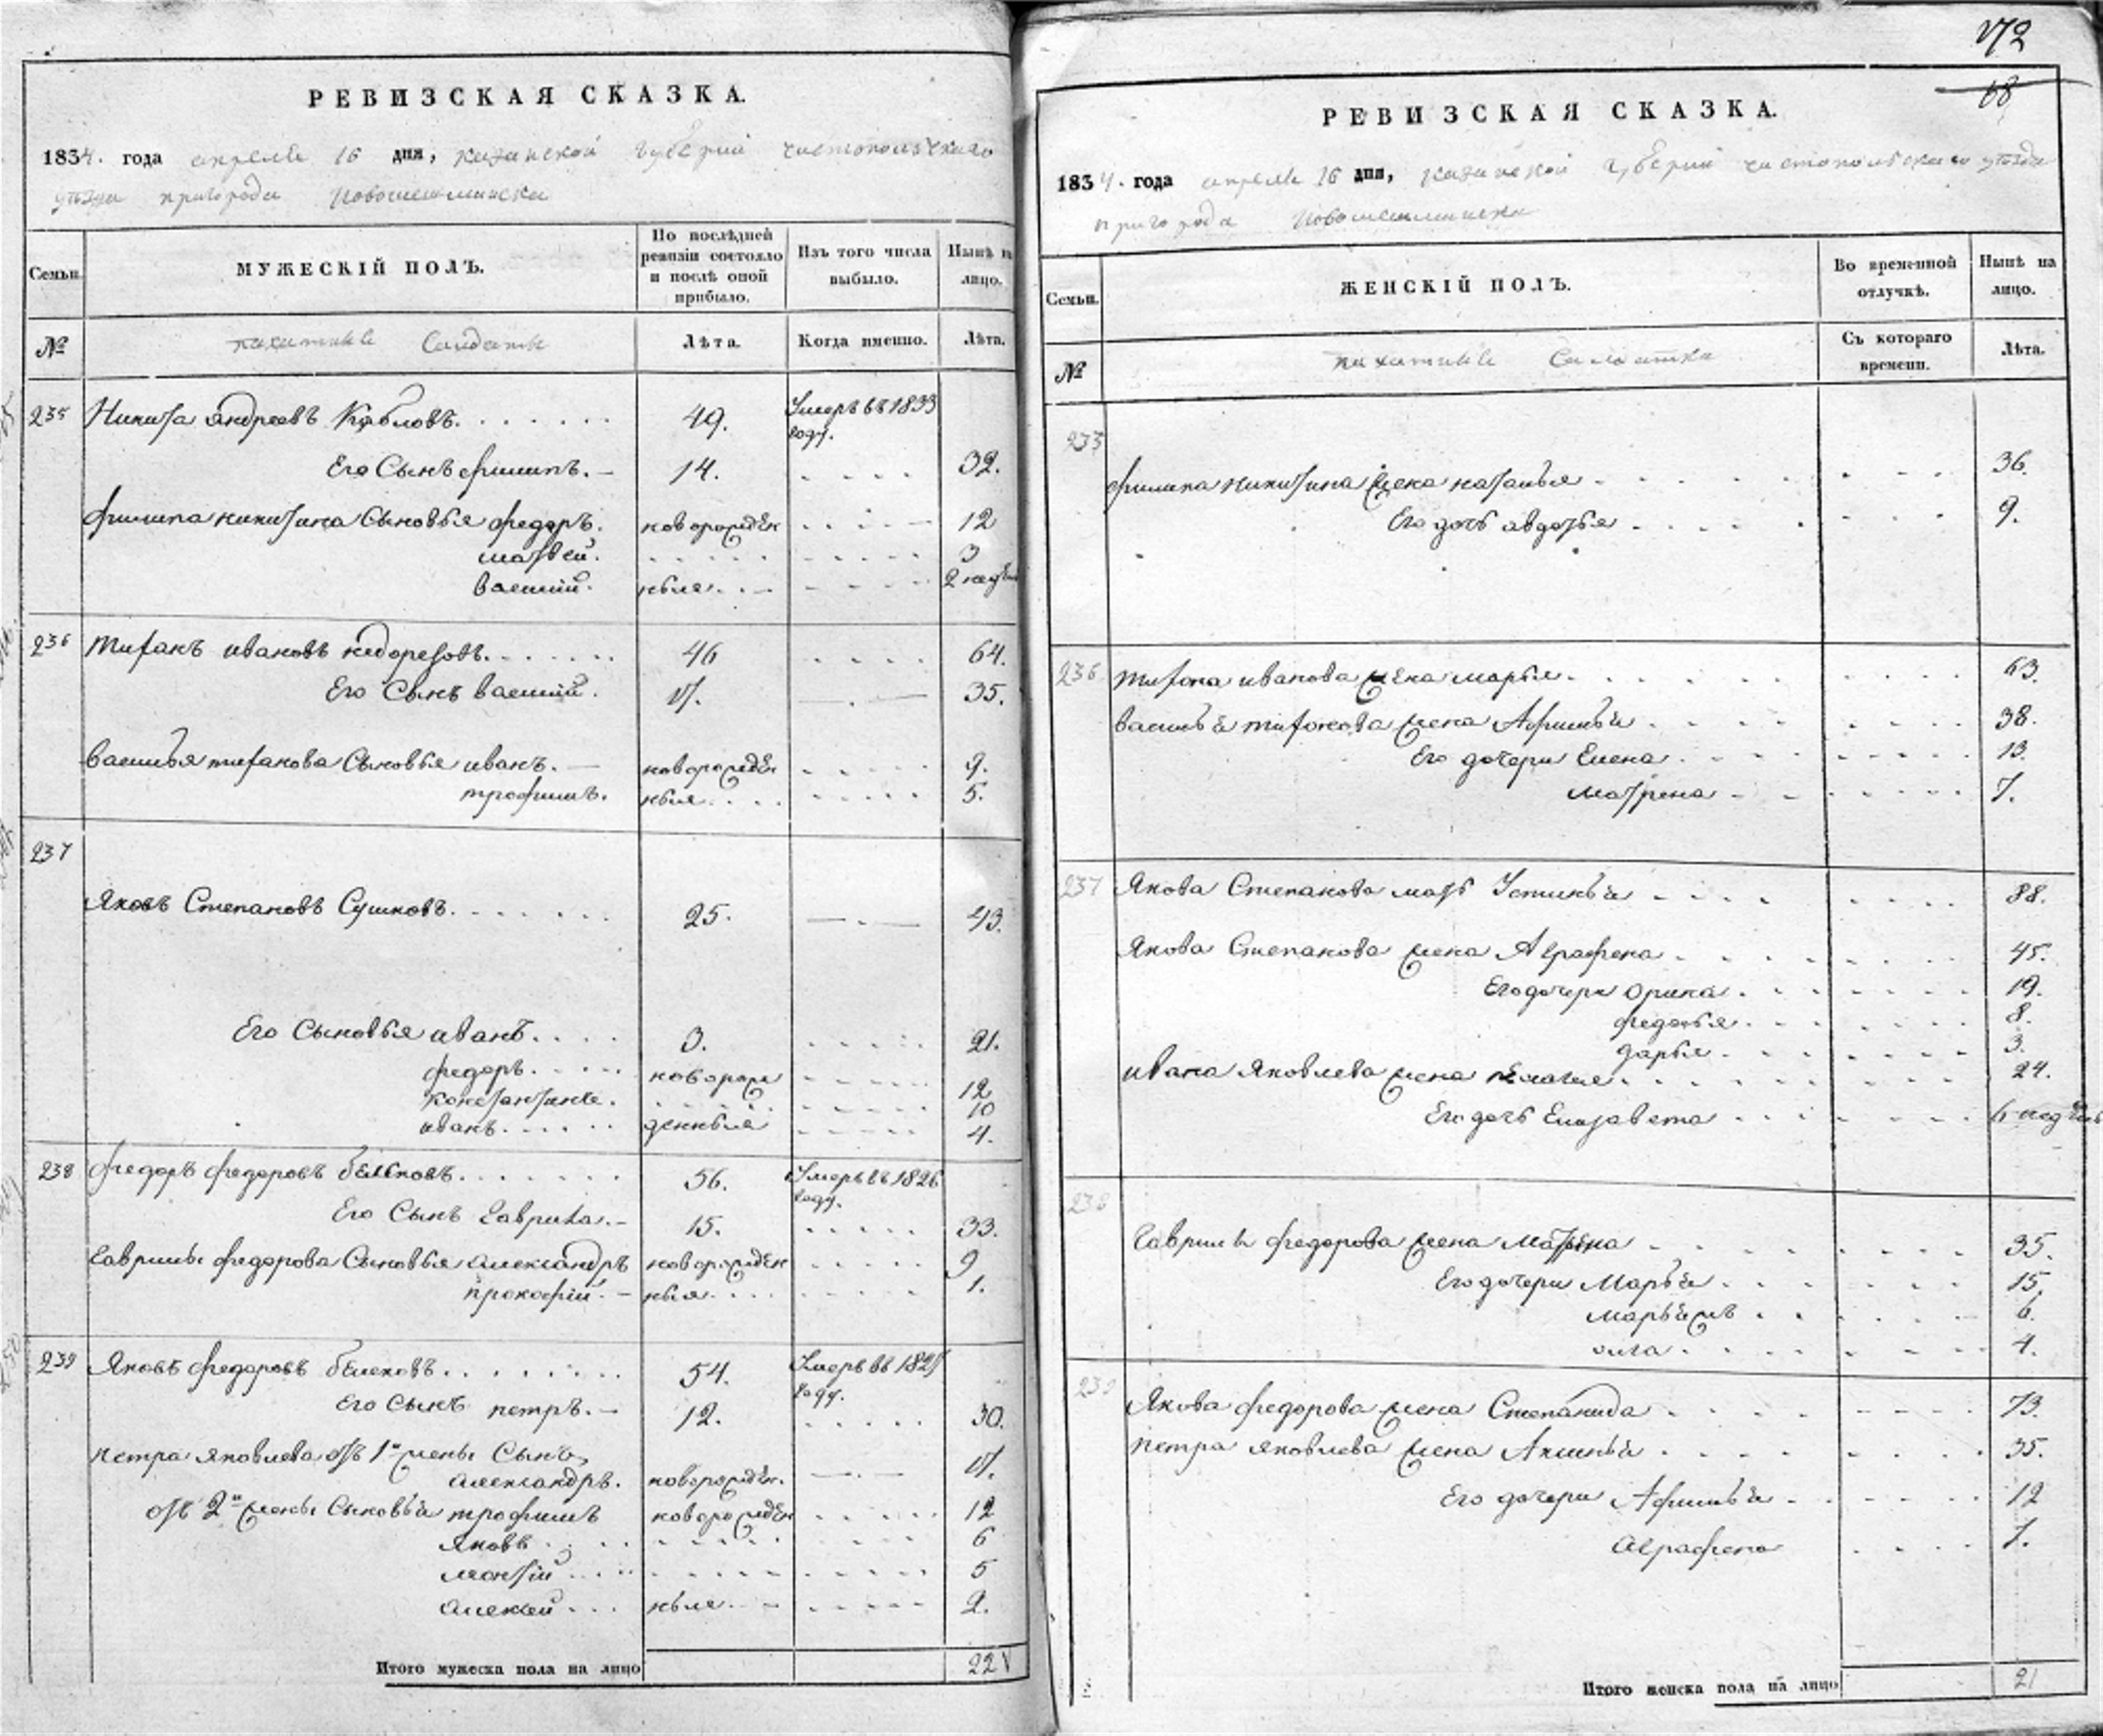 РЕВИЗСКАЯ СКАЗКА.
1834. года апреля 16 дня, казанской губернии чистопольскаго
уѣзда пригорода Новошешминска
Семьи.
МУЖЕСКІЙ ПОЛЪ.
По послѣдней ревизіи состояло и послѣ оной прибыло.
Изъ того числа выбыло.
Нынѣ на лицо.
№
пахатные Солдаты
Лѣта.
Когда именно.
Лѣта.
235 Никита андреевъ 49. Умеръ въ 1833 году.
Его Сынъ филипъ. 14. 32.
филипа никитина Сыновья федоръ. новорожден 12
матвей. 3
василий. ные 2 недѣли
236 тифанъ ивановъ недорезовъ. 46 64.
Его Сынъ василий. 17. 35.
василья тифанова Сыновья иванъ. новорожден 9.
трофимъ. ныя 5.
237
Яковъ Степановъ Сушковъ. 25. 43.
Его Сыновья иванъ. 3. 21.
федоръ. новорож 12
константинъ. 10
иванъ. денныя 4.
238 федоръ федоровъ белековъ. 56. Умеръ въ 1826 году.
Его Сынъ гаврила. 15. 33.
гаврилы федорова Сыновья александръ новорожден 9
прокофій. ныя 1.
239 Яковъ федоровъ белековъ. 54. Умеръ въ году.
Его Сынъ петръ. 12. 30.
петра яковлева отъ 1й жены Сынъ
александръ. новорожден. 17.
отъ 2й жены Сыновья трофимъ новорожден 12
Яковъ 6
5
алексей ные 2.
Итого мужеска пола на лицо 22
172
68
РЕВИЗСКАЯ СКАЗКА.
1834. года апреля 16 дня, казанской губернии чистопольскаго уѣзда
пригорода Новошешминска
Семьи.
ЖЕНСКІЙ ПОЛЪ.
Во временной отлучкѣ.
Нынѣ на лицо.
№
пахатные Солдатки
Съ котораго времени.
Лѣта.
235
филипа никитина жена наталья 36.
Его дочь авдотья 9.
236 тифона иванова жена марья 63.
василья тифонова жена Афимья 38.
Его дочери Елена 13.
матрена 7.
237 Якова Степанова мать Устинья 88.
Якова Степанова жена Аграфена 45.
Его дочери орина 19.
федосья 8.
дарья 3.
ивана Яковлева жена пелагея 24.
Его дочь Елизавета 6 недѣль
238
гаврилы федорова жена матрена 35.
Его дочери Марья 15.
6.
олга 4.
239
Якова федорова жена Степанида 73.
петра яковлева жена Аксинья 35.
Его дочери Афимья 12
Аграфена 7.
Итого женска пола на лицо 21